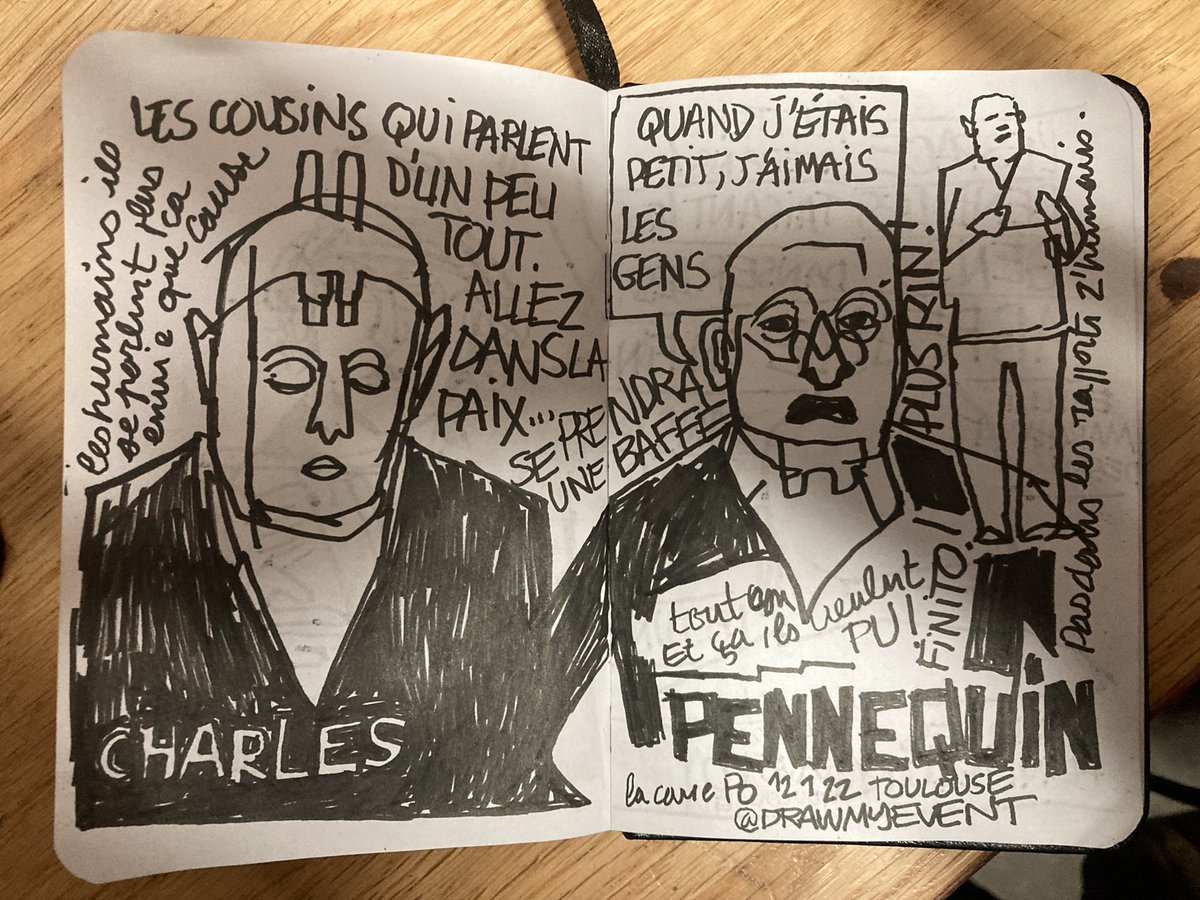 LES COUSINS QUI PARLENT
D'UN PEU
TOUT.
ALLEZ
DANS LA
PAIX...
SE PRENDRA
UNE BAFFE
les humains ils
se parlent plus
envie que ça
cause
CHARLES
QUAND J'ÉTAIS
PETIT, J'AIMAIS
LES
GENS
PLUS RIN!
Pas dans les rapports z'humains.
tout con
Et ça ils veulent
PU!
FINITO!
PENNEQUIN
la cave Po 12 1 22 TOULOUSE
@DRAWMYEVENT